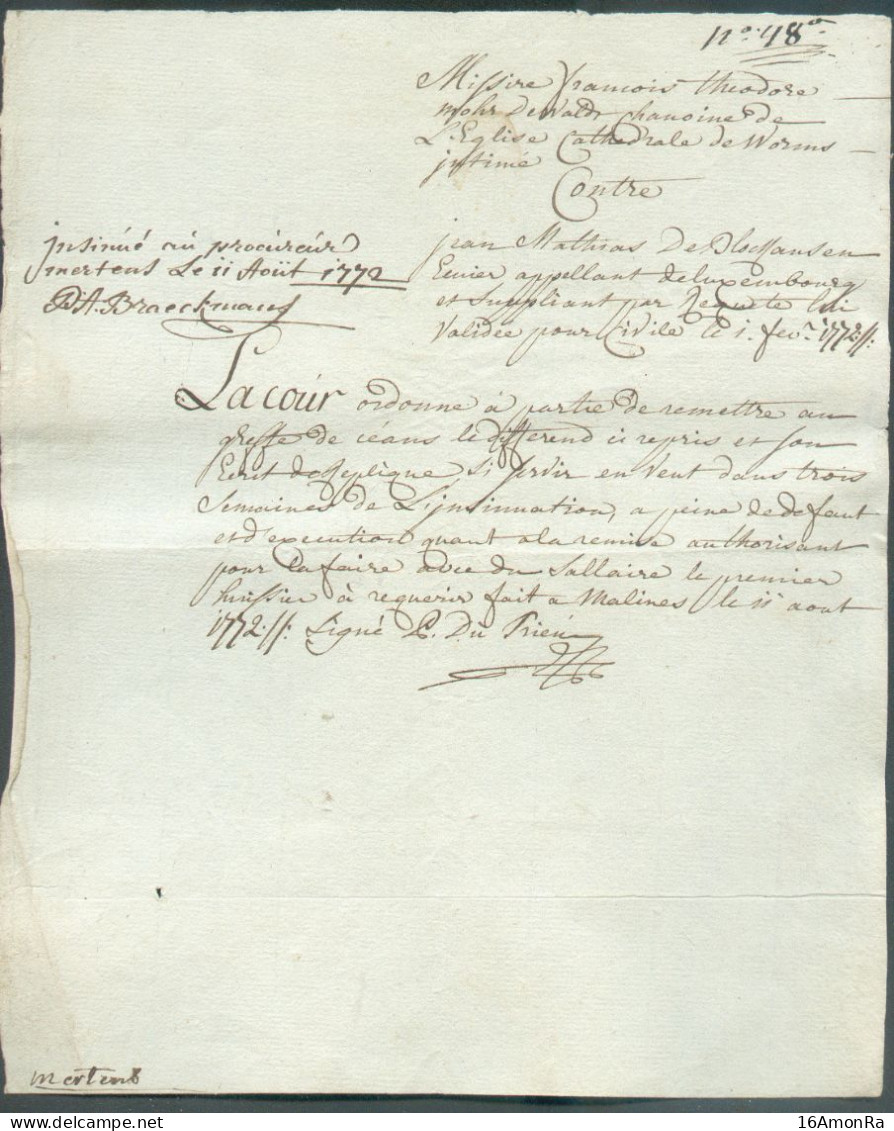 n.o 48.o
Missire francois theodore
mohr De Waldt Chanoine de
L'Eglise Cathedrale de Worms
intimé
Contre
jnsinué au procureur
mertens Le 11 Août 1772
P. A. Braeckmans
jean Mathias De Blochausen
Ecuier appellant de luxembourg
et Suppliant par Requete lui
Validée pour Civile le 1. fev.r 1772 :/:
La cour ordonne à partie de remettre au
greffe de céans le different ici repris et son
Ecrit de Replique Si servir en veut dans trois
Semaines de L'jnsinuation, a peine de defaut
et d'execution quant a la remise authorisant
pour la faire avec du Sallaire le premier
huissier à requerir fait a Malines le 11 aout
1772 :/: Signé P. Du Trieu
mertens
16AmonRa